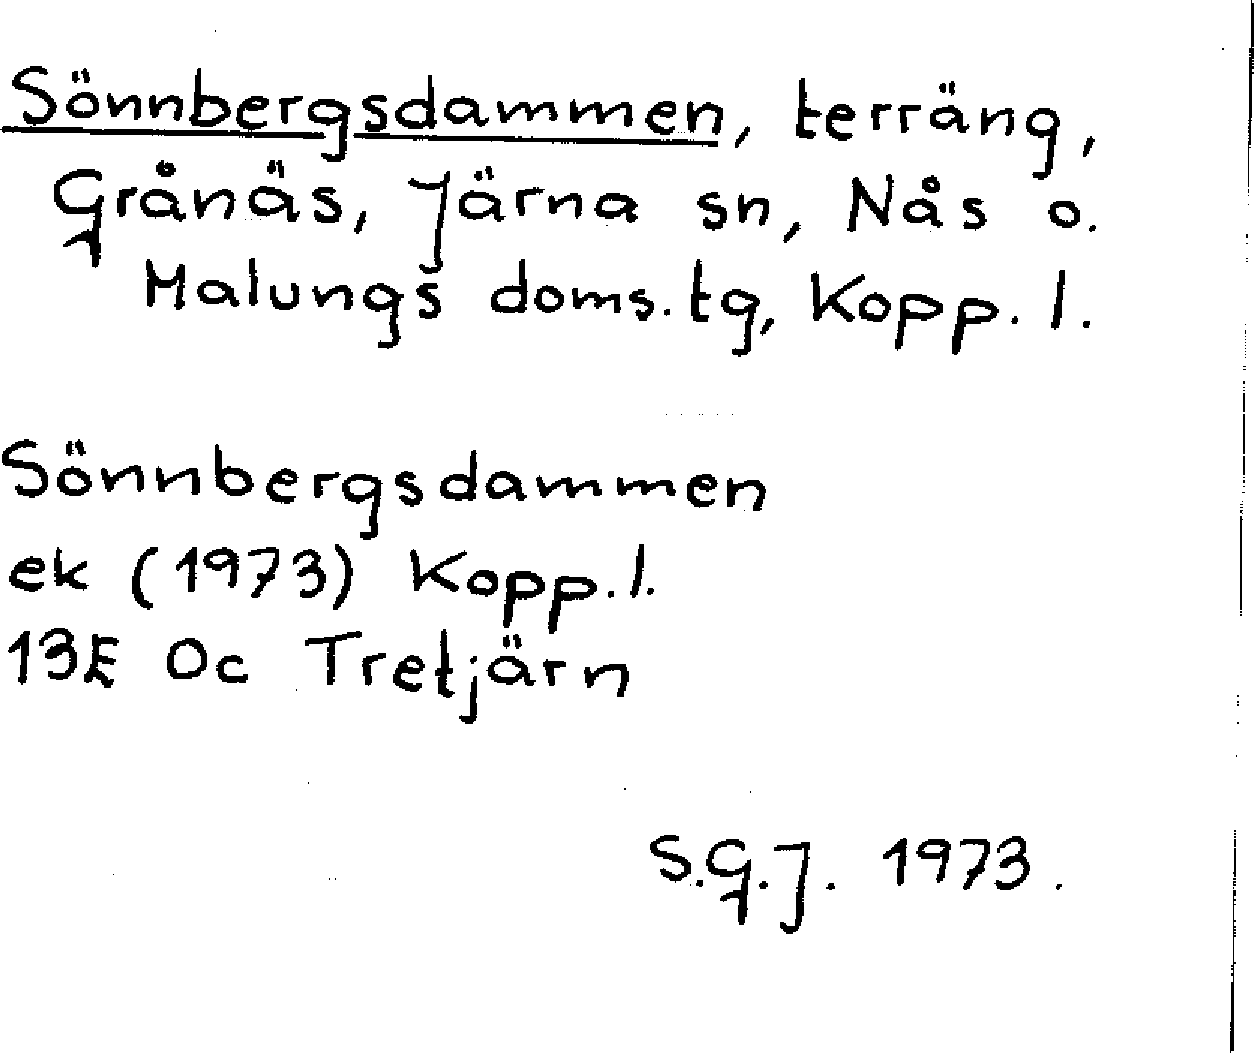 Sönnbergsdammen, terräng,
Grånäs, Järna sn, Nås o.
Malungs doms.tg, Kopp. l.
Sönnbergsdammen
ek (1973) Kopp. l.
13E 0c Tretjärn
S.G.J. 1973.